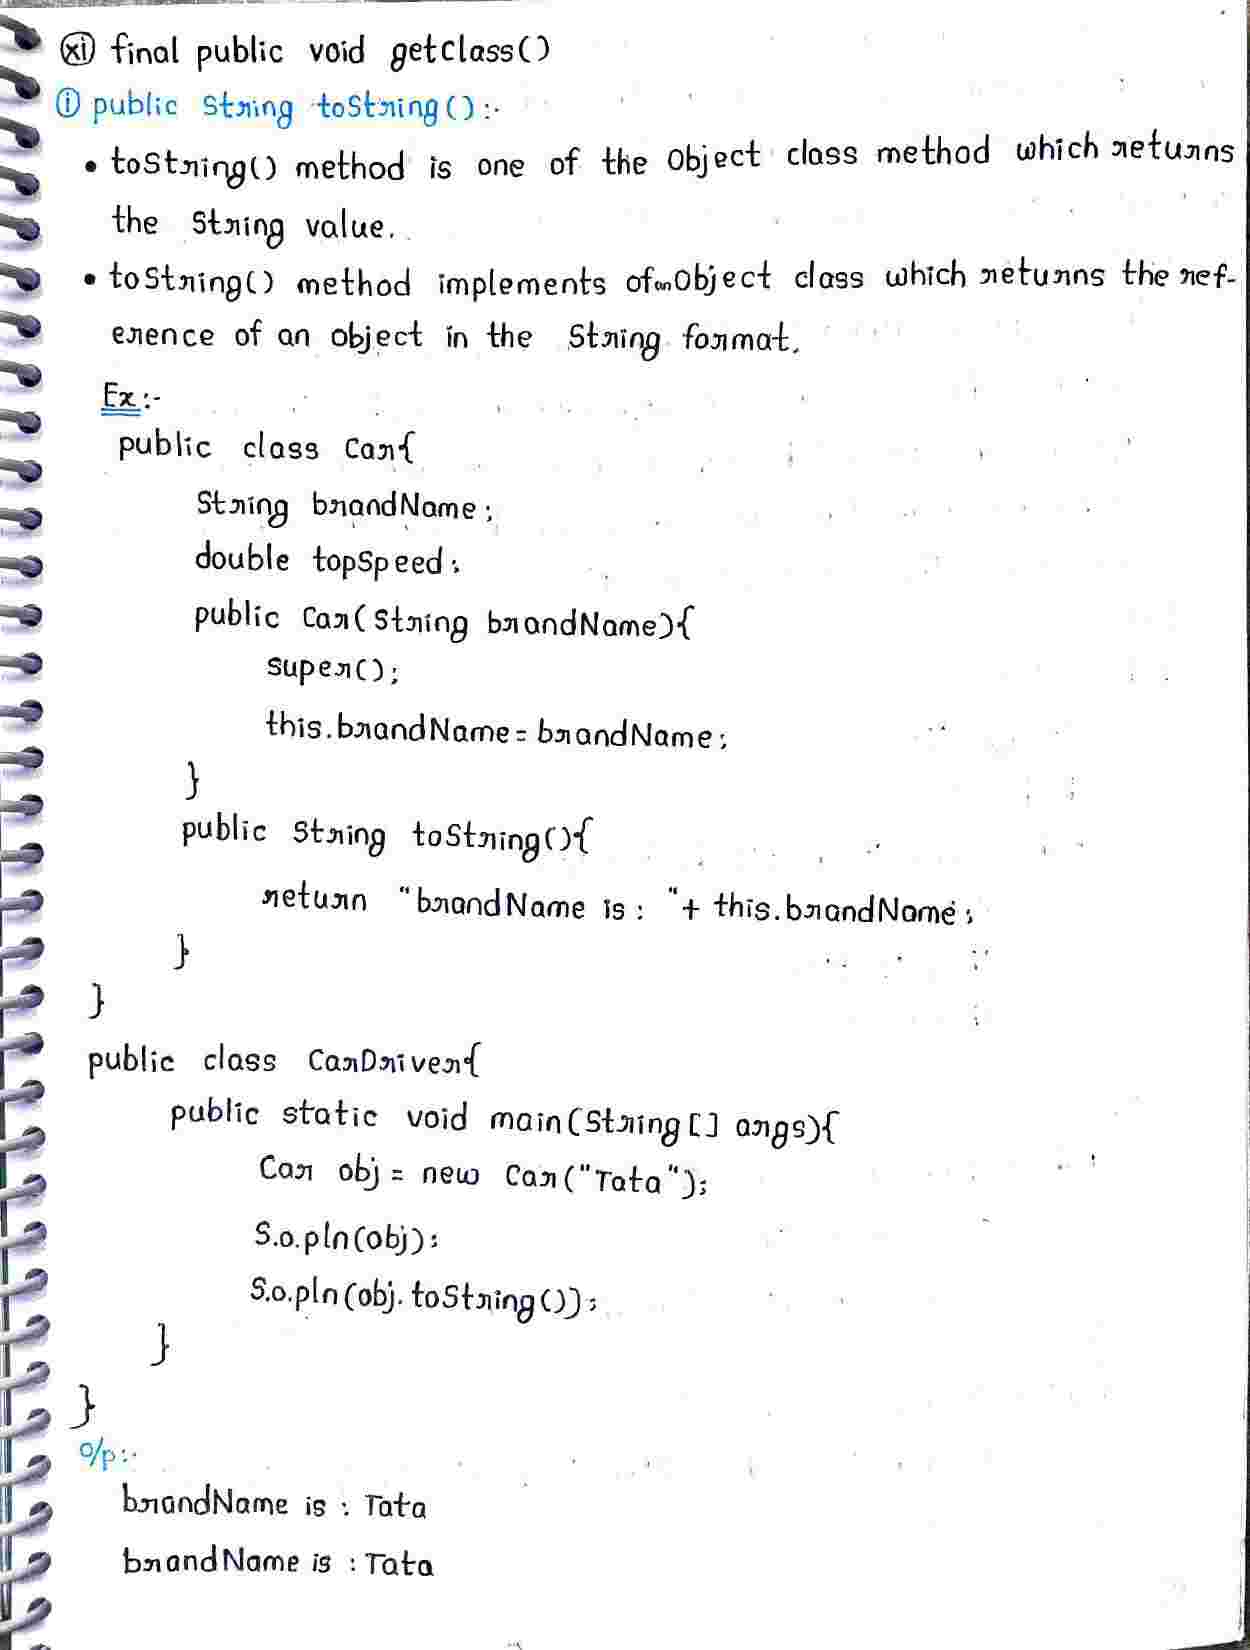 (xi) final public void getclass()
(i) public String toString():-
• toString() method is one of the Object class method which returns
the String value.
• toString() method implements of an Object class which returns the ref-
erence of an object in the String format.
Ex:-
public class Car{
String brandName;
double topSpeed;
public Car(String brandName){
super();
this.brandName = brandName;
}
public String toString(){
return "brandName is : "+ this.brandName;
}
}
public class CarDriver{
public static void main(String[] args){
Car obj = new Car("Tata");
S.o.pln(obj);
S.o.pln(obj.toString());
}
}
o/p:-
brandName is : Tata
brandName is : Tata